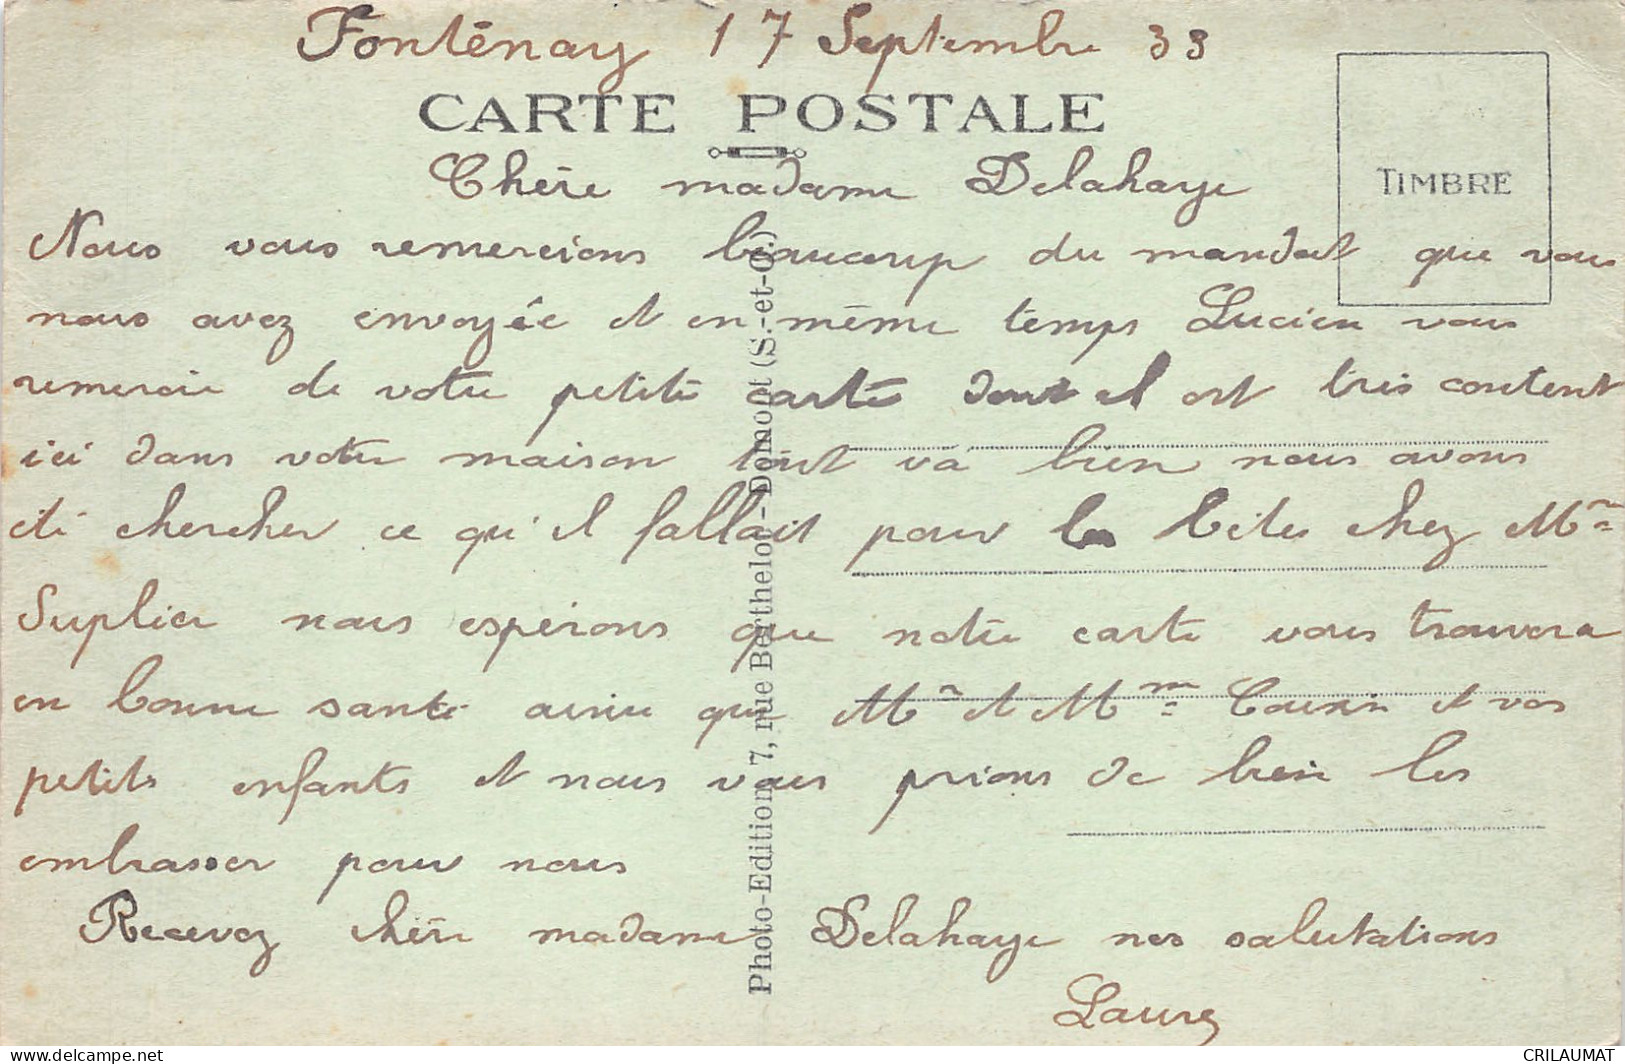 Fontênay 17 Septembre 33
CARTE POSTALE
TIMBRE
Chère madame Delahaye
Nous vous remercions beaucoup du mandat que vous
nous avez envoyée et en même temps Lucien vous
remercie de votre petite carte dont il est très content
ici dans votre maison tout va bien nous avons
été chercher ce qu'il fallait pour les bêtes chez Mr
Suplice nous espérons que notre carte vous trouvera
en bonne santé ainsi que Mr et Mme Cousin et vos
petits enfants et nous vous prions de bien les
embrasser pour nous
Recevez chère madame Delahaye nos salutations
Laure
Photo-Edition, 7, rue Berthelot - Domont (S.-et-O.)
CRILAUMAT